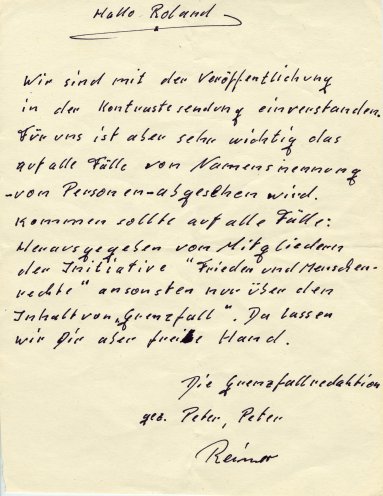 Hallo Roland
Wir sind mit der Veröffentlichung
in der Kontrastesendung einverstanden.
Für uns ist aber sehr wichtig das
auf alle Fälle von Namensnennung
-von Personen-abgesehen wird.
Kommen sollte auf alle Fälle:
Herausgegeben von Mitgliedern
der Initiative "Frieden und Menschen-
rechte" ansonsten nur über den
Inhalt von „Grenzfall". Da lassen
wir Dir aber freie Hand.
Die Grenzfallredaktion
gez. Peter, Peter
Reimar